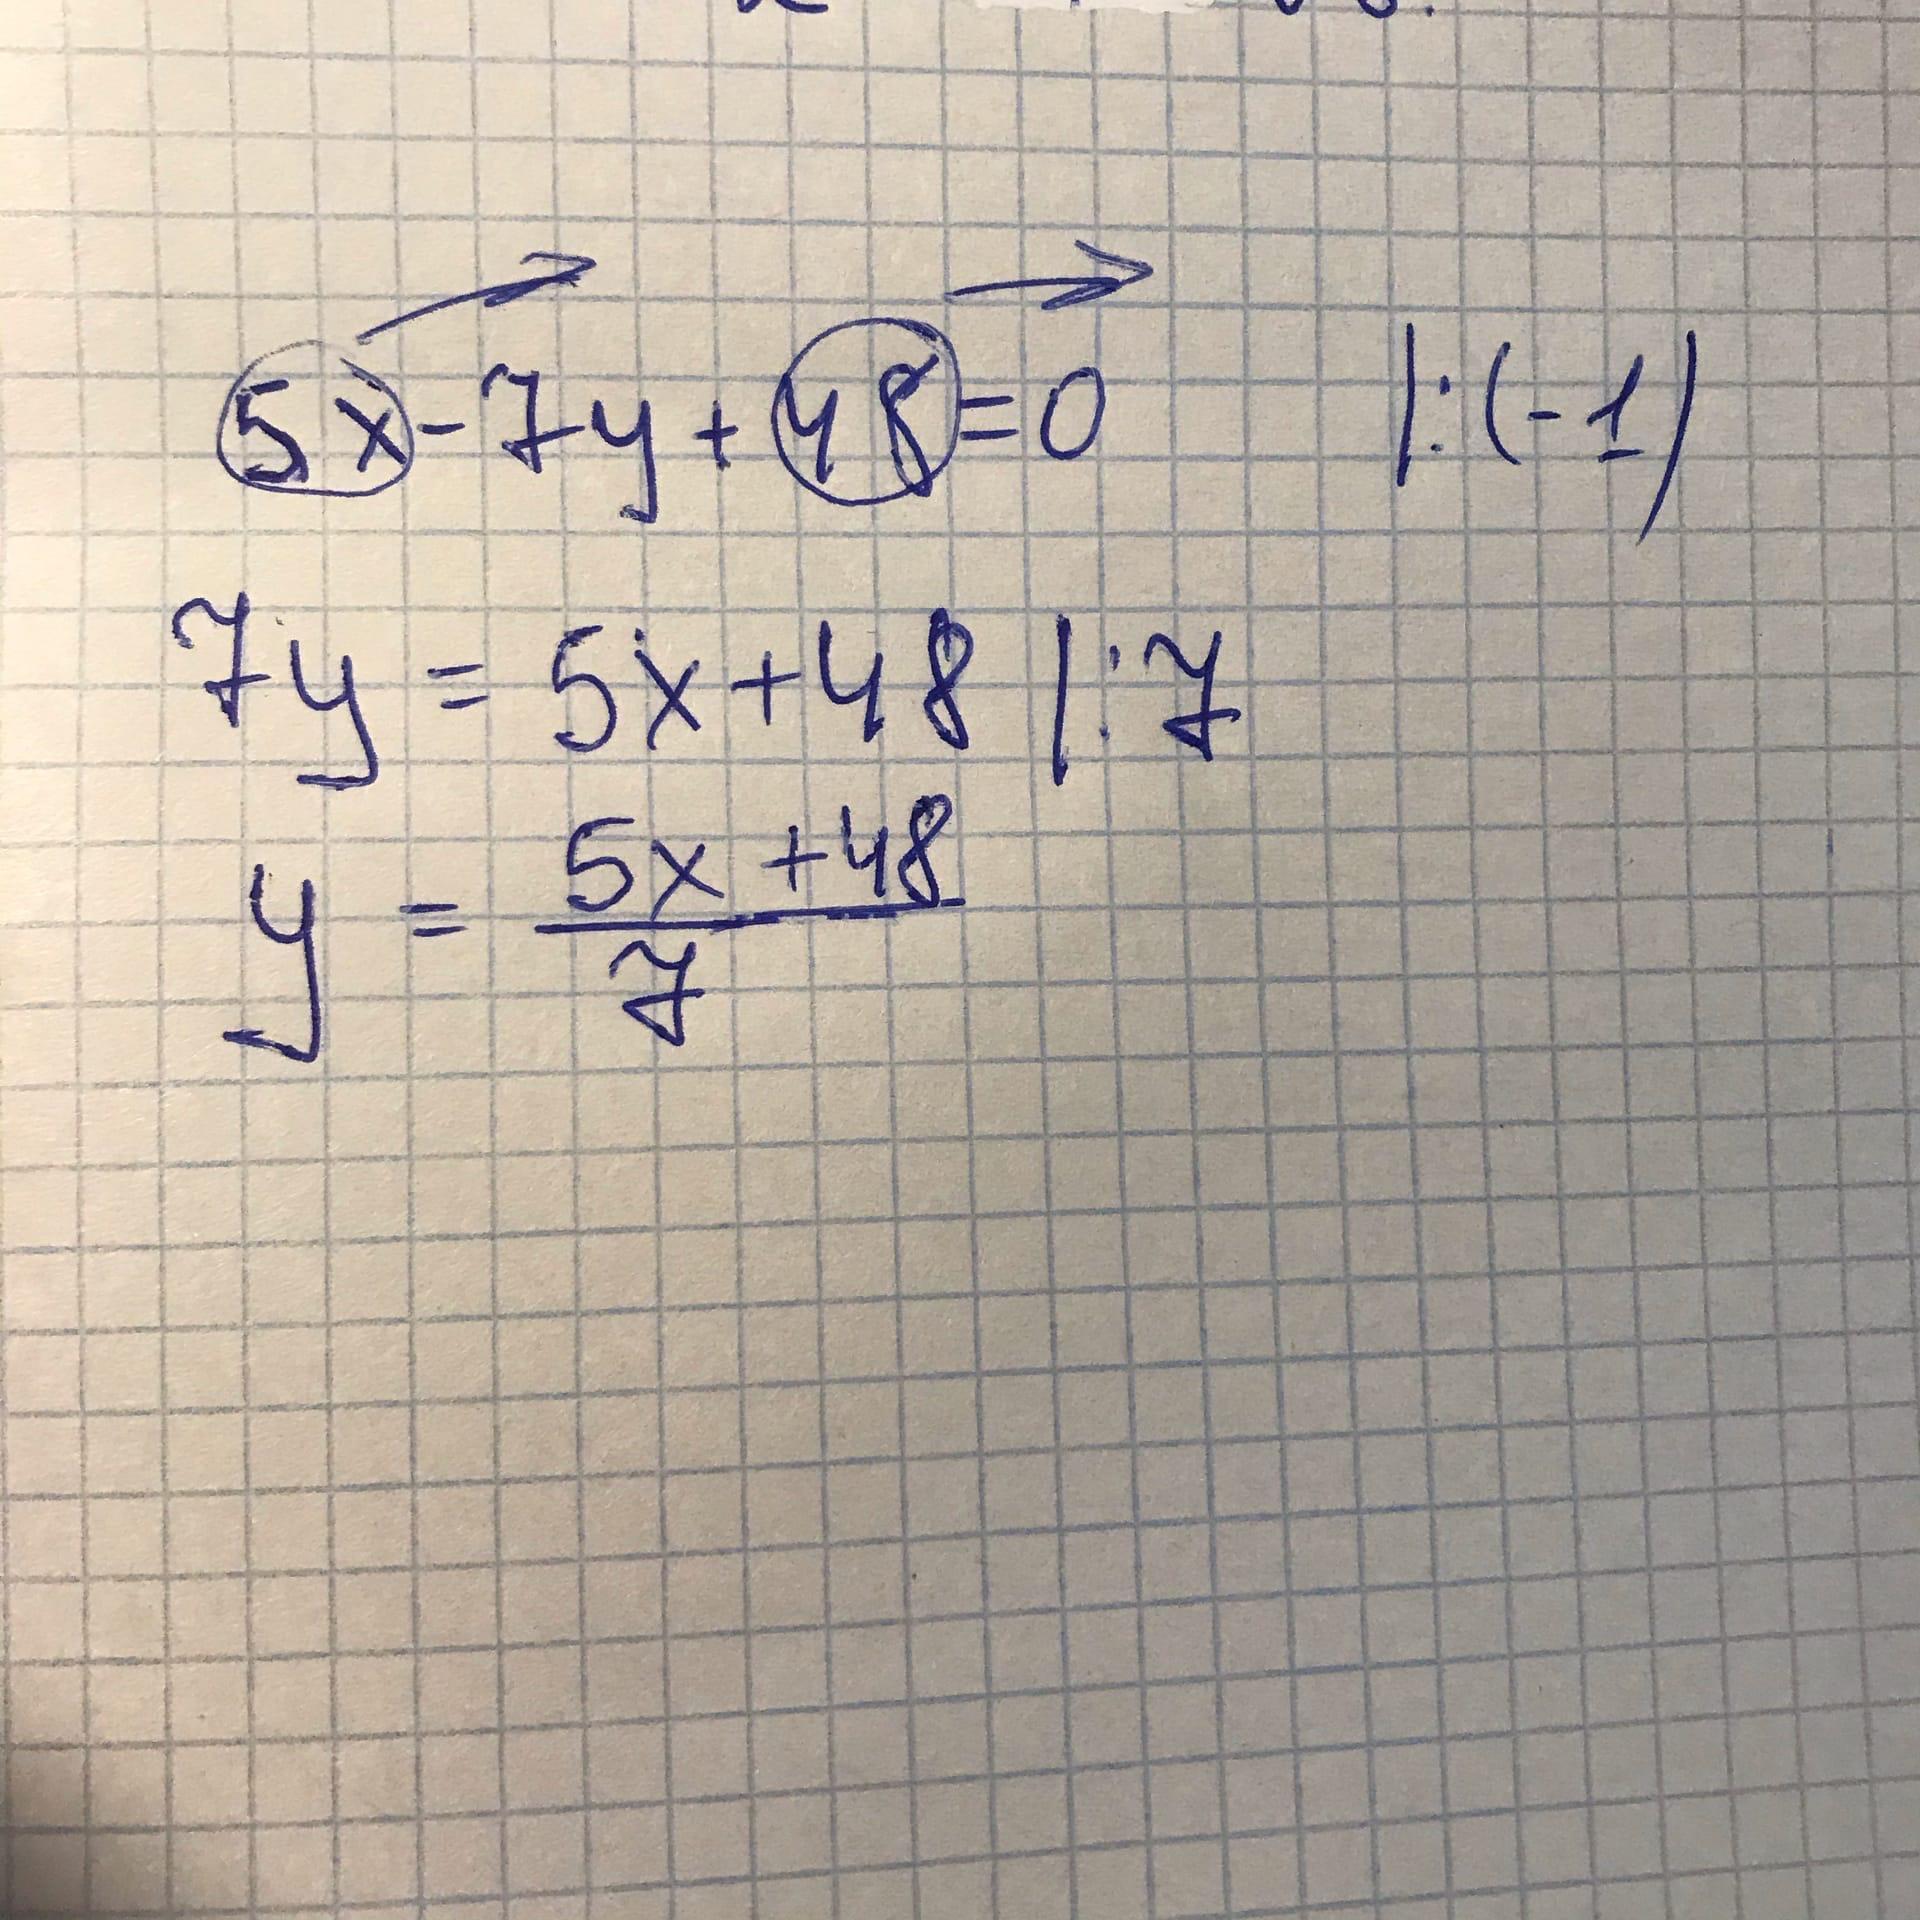 5x-7y+48=0 |:(-1)
7y = 5x+48 |:7
y = 5x+48
7